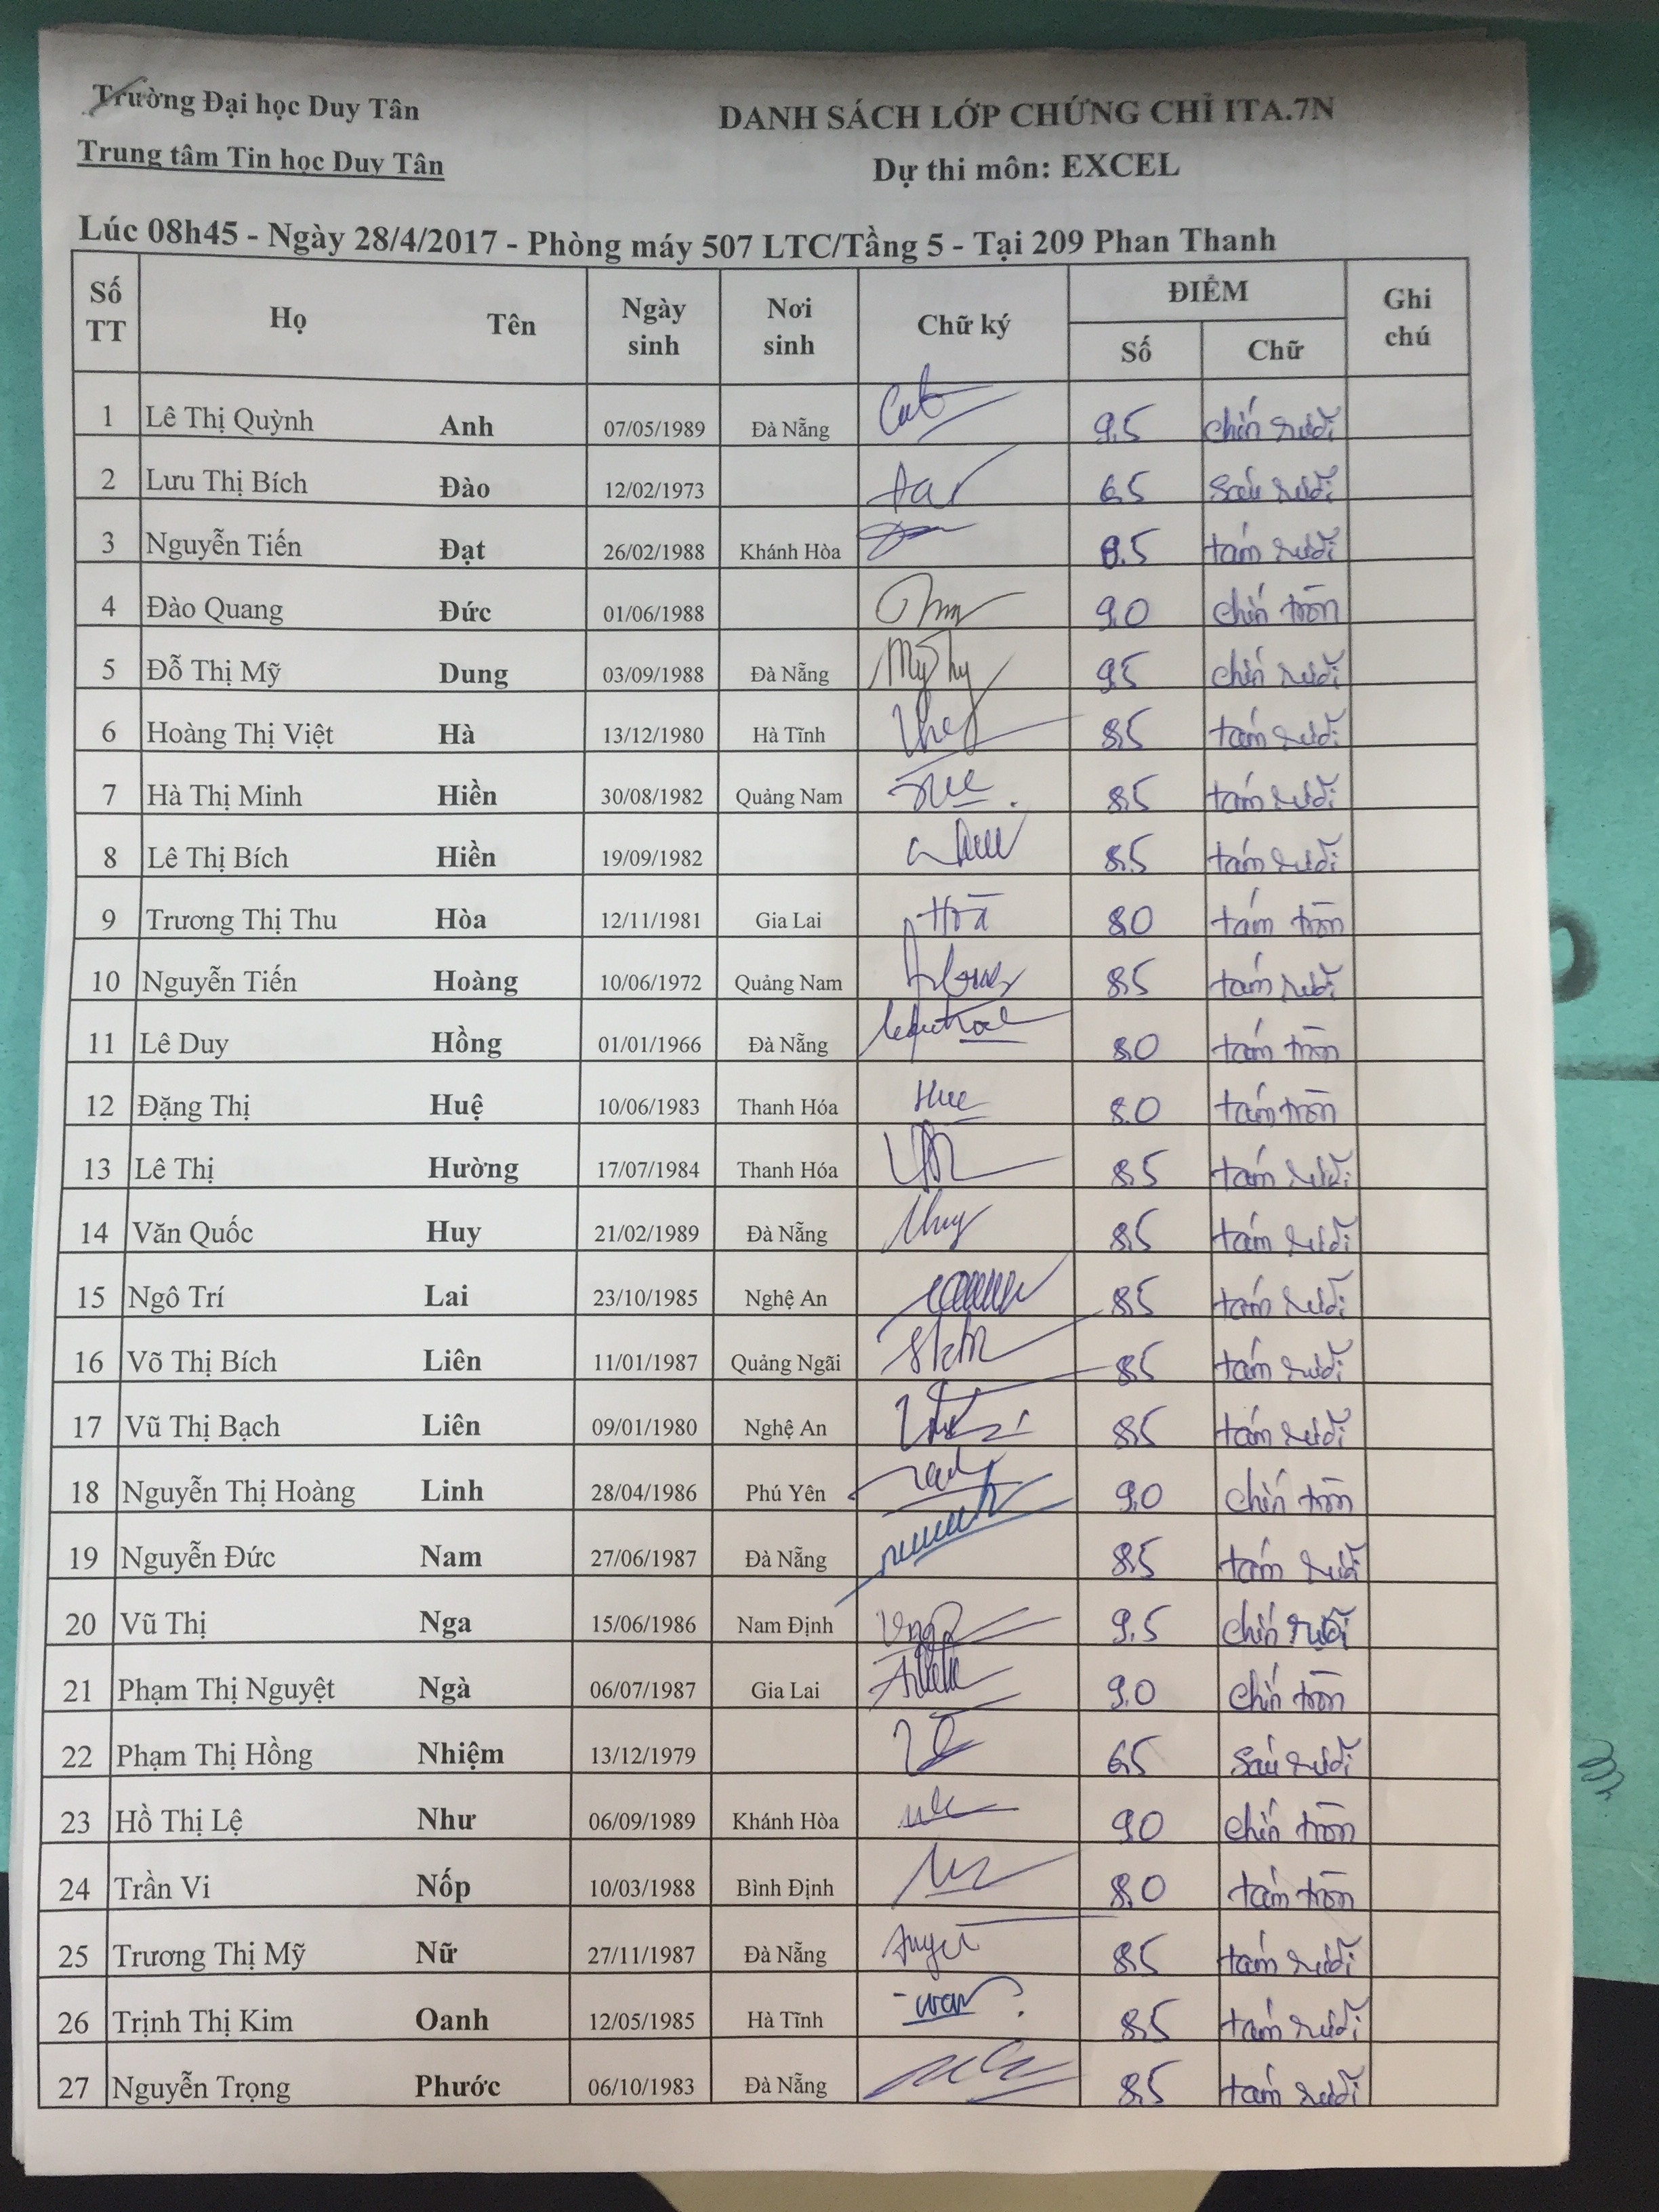 Trường Đại học Duy Tân
Trung tâm Tin học Duy Tân
DANH SÁCH LỚP CHỨNG CHỈ ITA.7N
Dự thi môn: EXCEL
Lúc 08h45 - Ngày 28/4/2017 - Phòng máy 507 LTC/Tầng 5 - Tại 209 Phan Thanh
Số TT Họ Tên Ngày sinh Nơi sinh Chữ ký ĐIỂM Số Chữ Ghi chú
1 Lê Thị Quỳnh Anh 07/05/1989 Đà Nẵng 9.5 chín rưỡi
2 Lưu Thị Bích Đào 12/02/1973 6.5 sáu rưỡi
3 Nguyễn Tiến Đạt 26/02/1988 Khánh Hòa 8.5 tám rưỡi
4 Đào Quang Đức 01/06/1988 9.0 chín tròn
5 Đỗ Thị Mỹ Dung 03/09/1988 Đà Nẵng 9.5 chín rưỡi
6 Hoàng Thị Việt Hà 13/12/1980 Hà Tĩnh 8.5 tám rưỡi
7 Hà Thị Minh Hiền 30/08/1982 Quảng Nam 8.5 tám rưỡi
8 Lê Thị Bích Hiền 19/09/1982 8.5 tám rưỡi
9 Trương Thị Thu Hòa 12/11/1981 Gia Lai 8.0 tám tròn
10 Nguyễn Tiến Hoàng 10/06/1972 Quảng Nam 8.5 tám rưỡi
11 Lê Duy Hồng 01/01/1966 Đà Nẵng 8.0 tám tròn
12 Đặng Thị Huệ 10/06/1983 Thanh Hóa Hue 8.0 tám tròn
13 Lê Thị Hường 17/07/1984 Thanh Hóa 8.5 tám rưỡi
14 Văn Quốc Huy 21/02/1989 Đà Nẵng 8.5 tám rưỡi
15 Ngô Trí Lai 23/10/1985 Nghệ An 8.5 tám rưỡi
16 Võ Thị Bích Liên 11/01/1987 Quảng Ngãi 8.5 tám rưỡi
17 Vũ Thị Bạch Liên 09/01/1980 Nghệ An 8.5 tám rưỡi
18 Nguyễn Thị Hoàng Linh 28/04/1986 Phú Yên 9.0 chín tròn
19 Nguyễn Đức Nam 27/06/1987 Đà Nẵng 8.5 tám rưỡi
20 Vũ Thị Nga 15/06/1986 Nam Định 9.5 chín rưỡi
21 Phạm Thị Nguyệt Ngà 06/07/1987 Gia Lai 9.0 chín tròn
22 Phạm Thị Hồng Nhiệm 13/12/1979 6.5 sáu rưỡi
23 Hồ Thị Lệ Như 06/09/1989 Khánh Hòa 9.0 chín tròn
24 Trần Vi Nốp 10/03/1988 Bình Định 8.0 tám tròn
25 Trương Thị Mỹ Nữ 27/11/1987 Đà Nẵng 8.5 tám rưỡi
26 Trịnh Thị Kim Oanh 12/05/1985 Hà Tĩnh 8.5 tám rưỡi
27 Nguyễn Trọng Phước 06/10/1983 Đà Nẵng 8.5 tám rưỡi